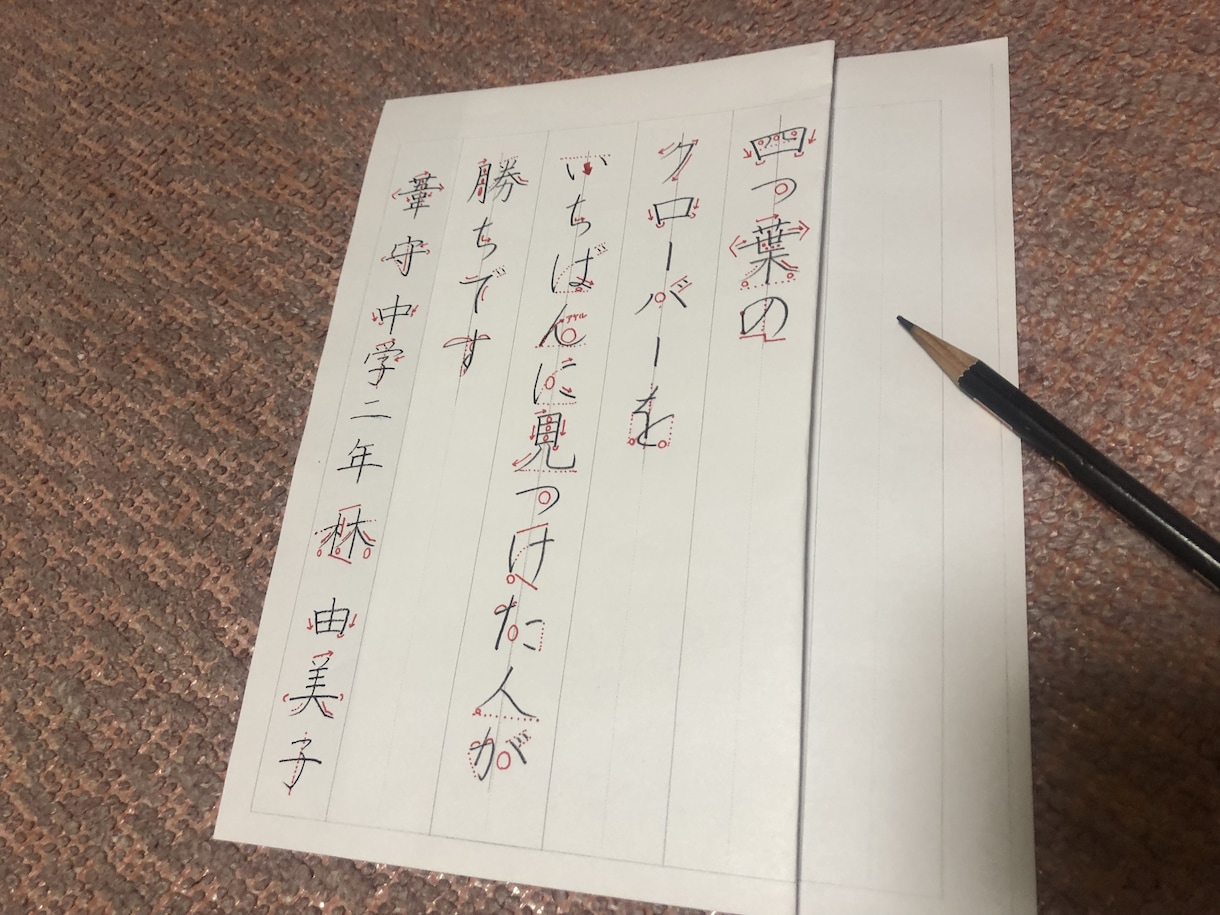 四つ葉の
クローバーを
いちばんに見つけた人が
勝ちです
葦守中学二年 林 由美子